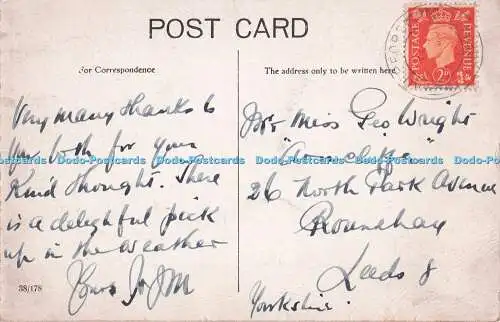 POST CARD
For Correspondence
The address only to be written here
POSTAGE REVENUE
2D
Very many thanks to
you both for your
Kind thought. There
is a delightful pick
up in the weather
Yours
38/178
Miss Geo Wright
"Arncliffe"
26 North Park Avenue
Roundhay
Leeds 8
Yorkshire.
Dodo-Postcards Dodo-Postcards Dodo-Postcards Dodo-Postcards Dodo-Postcards Dodo-Postcards